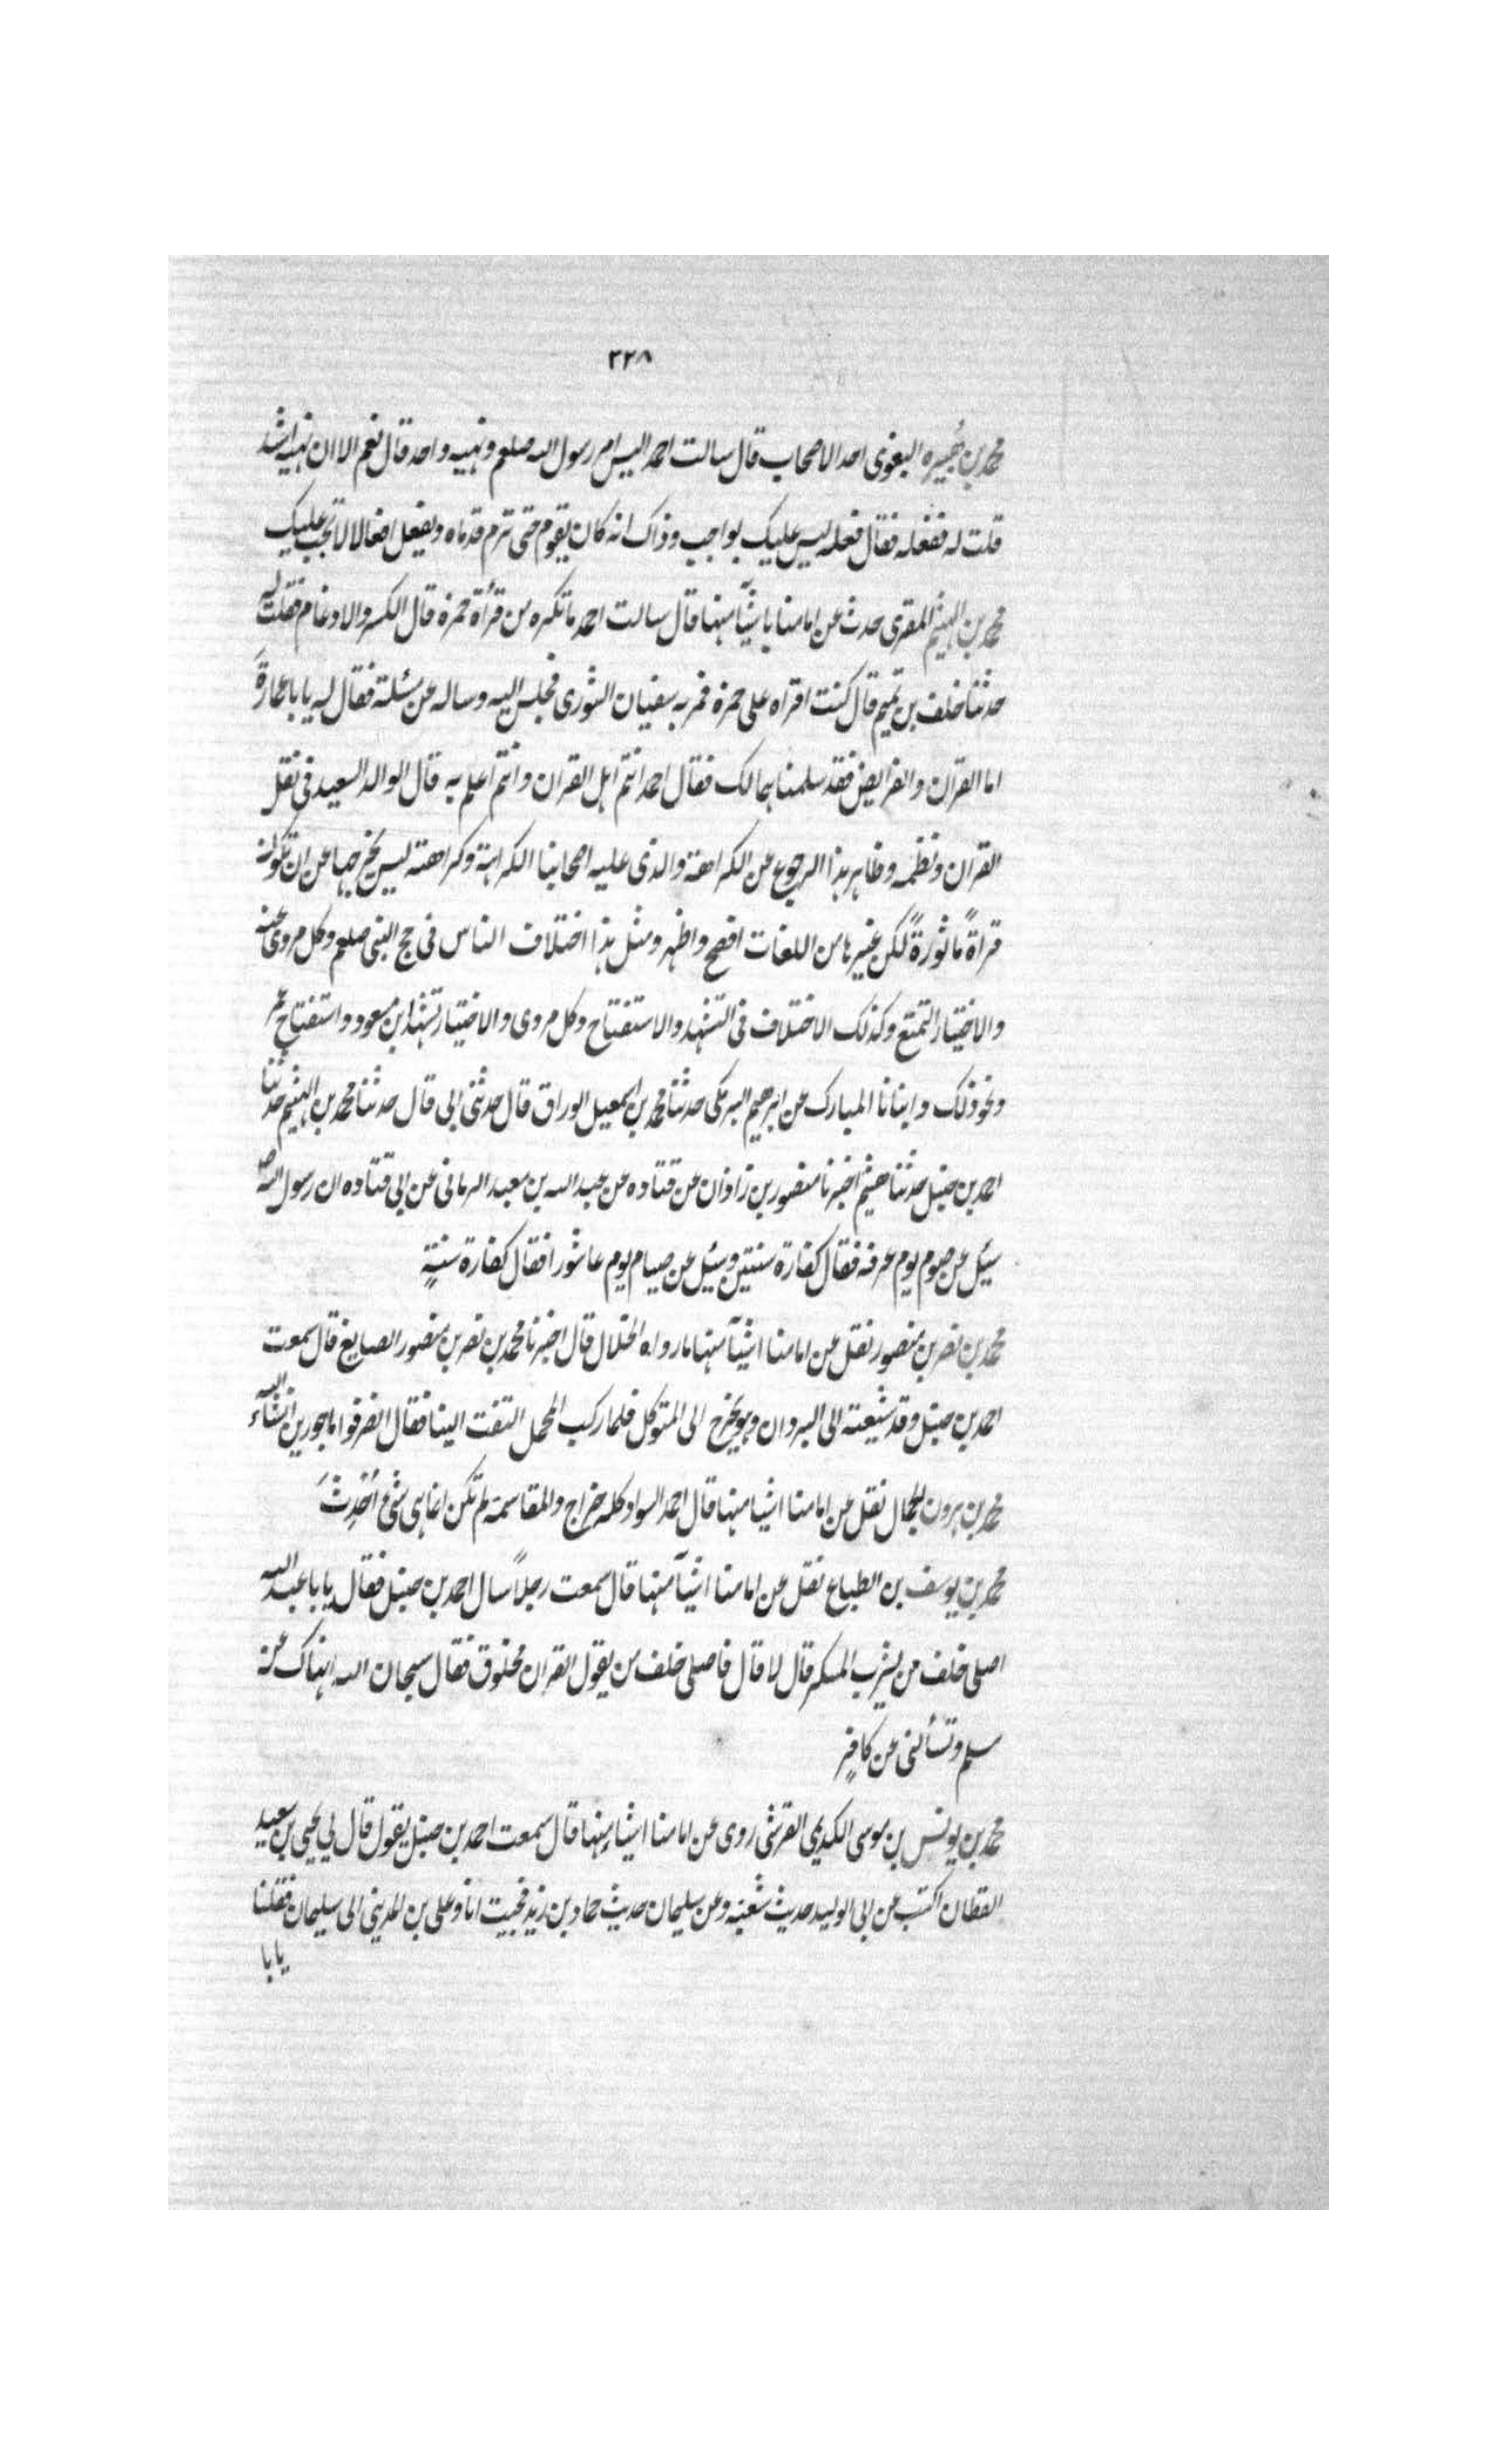 ٣٢٨
محمد بن هبيره البغوى احد الاصحاب قال سالت احمد اليس امر رسول الله صلعم ونهيه واحد قال نعم الا ان نهيه اشد
قلت له ففعله فقال فعله ليس عليك بواجب وذاك انه كان يقوم حتى ترم قدماه ويفعل افعالا لا تجب عليك
محمد بن الهيثم المقرى حدث عن امامنا باشيآ منها قال سالت احمد ما تكره من قرأة حمزة قال الكسر والادغام فقلت له
حدثنا خلف بن تميم قال كنت اقراه على حمزة فمر به سفيان الثورى فجلس اليه وساله عن مسئلة فقال له يا با عمارة
اما القران والفرايض فقد سلمناهما لك فقال احمد انتم اهل القران وانتم اعلم به قال الوالد السعيد فى نقل
القران ونظمه وظاهر هذا الرجوع عن الكراهة والذى عليه اصحابنا الكراهة وكراهته ليس يخرجها عن ان تكون
قراةً ماثورةً لكن غيرها من اللغات افصح واظهر ومثل هذا اختلاف الناس فى حج النبى صلعم وكل مروى عنه
والاختيار التمتع وكذلك الاختلاف فى التشهد والاستفتاح وكل مروى والاختيار تشهد ابن مسعود واستفتاح عمر
ونحو ذلك وانبانا المبارك عن ابرهيم البرمكى حدثنا محمد بن اسمعيل الوراق قال حدثنى ابى قال حدثنا محمد بن الهيثم حدثنا
احمد بن حنبل حدثنا هشيم اخبرنا منصور بن زاذان عن قتاده عن عبد الله بن معبد الزمانى عن ابى قتاده ان رسول الله
سئل عن صوم يوم عرفه فقال كفارة سنتين وسئل عن صيام يوم عاشورا فقال كفارة سنتةٍ
محمد بن نصر بن منصور نقل عن امامنا اشيآ منها ما رواه الخلال قال اخبرنا محمد بن نصر بن منصور الصايغ قال سمعت
احمد بن حنبل وقد شيعته الى البردان وهو يخرج الى المتوكل فلما ركب المحمل التفت الينا فقال انصرفوا ماجورين انشاء الله
محمد بن هرون الجمال نقل عن امامنا اشيا منها قال احمد السواد كله خراج والمقاسمة لم تكن انما هى شئ اُحْدِثَ
محمد بن يوسف بن الطباع نقل عن امامنا اشيآ منها قال سمعت رجلاً سال احمد بن حنبل فقال يا با عبد الله
اصلى خلف من يشرب المسكر قال لا قال فاصلى خلف من يقول القران مخلوق فقال سبحان الله انهاك عن
مسلم وتسألنى عن كافرٍ
محمد بن يونس بن موسى الكديمى القرشى روى عن امامنا اشياء منها قال سمعت احمد بن حنبل يقول قال لى يحيى بن سعيد
القطان اكتب عن ابى الوليد حديث شعبه وعن سليمان حديث حماد بن زيد فجيت انا وعلى بن المدينى الى سليمان فقلنا
يا با